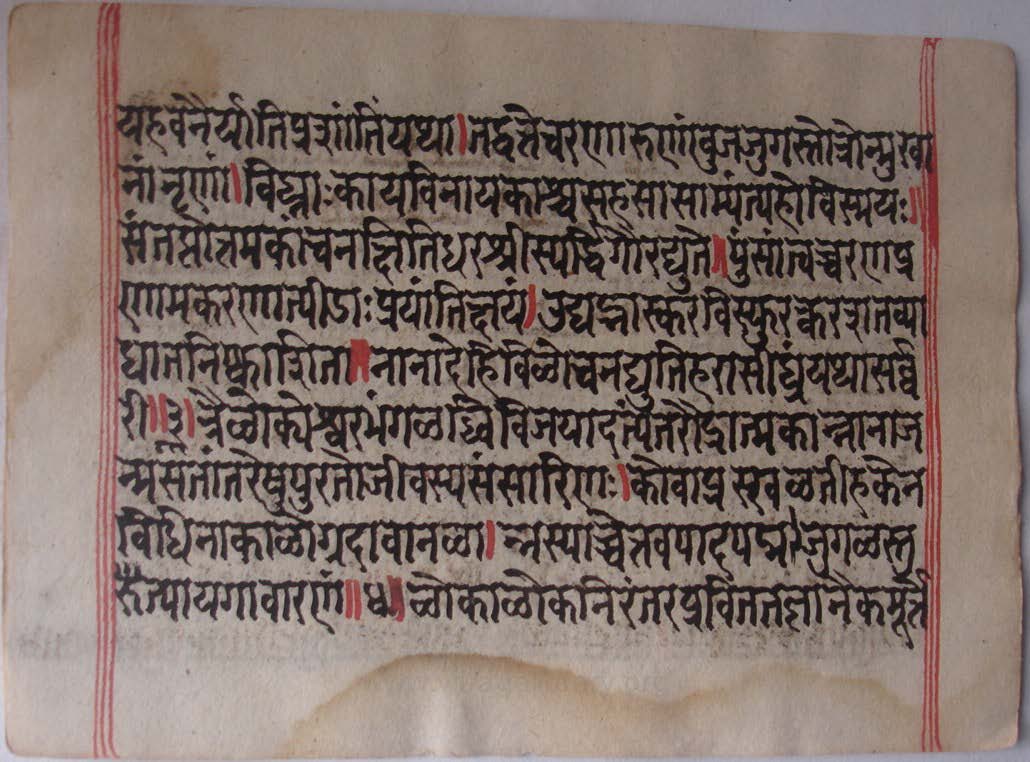 यहवनैर्यातिप्रशांतिंयथा।तद्वत्तेचरणारुणांबुजजुगस्तोत्रोन्मुखा
नांनृणां।विघ्नाःकायविनायकाश्चसहसासाम्यंत्यहोविस्मयः॥
संतप्तोत्तमकांचनक्षितिधरश्रीस्पर्द्धिगौरद्युते।पुंसांत्वच्चरणप्र
णामकरणात्पीडाःप्रयांतिक्षयं।उद्यद्भास्करविस्फुरत्करशतव्या
घातनिष्कासिता।नानादेहिविळोचनद्युतिहराशीघ्रंयथाशर्व्व
री॥३।त्रैळोक्येश्वरभंगळब्धिविजयादत्यंतरौद्रात्मकान्नानाज
न्मशतांतरेषुपुरतोजीवस्यसंसारिणः।कोवाप्रस्खळतीहकेन
विधिनाकाळोग्रदावानळा।न्नस्याच्चेत्तवपादपद्मजुगळस्तु
त्यापगावारणं॥४॥ळोकाळोकनिरंतरप्रविततज्ञानैकमूर्त्ते